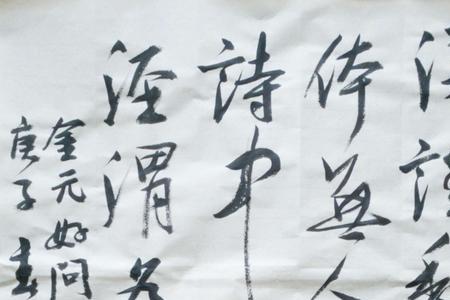 体無人
詩中
涇渭各
金元好問
庚子春